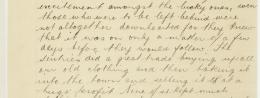 excitement amongst the lucky ones, even
those who were to be left behind were
not altogether downhearted for they knew
that it was only a matter of a few
days before they would follow. The
Sentries did a great trade buying up all
our old clothing and then taking it
into the town and selling it at a
huge profit. None of us kept much